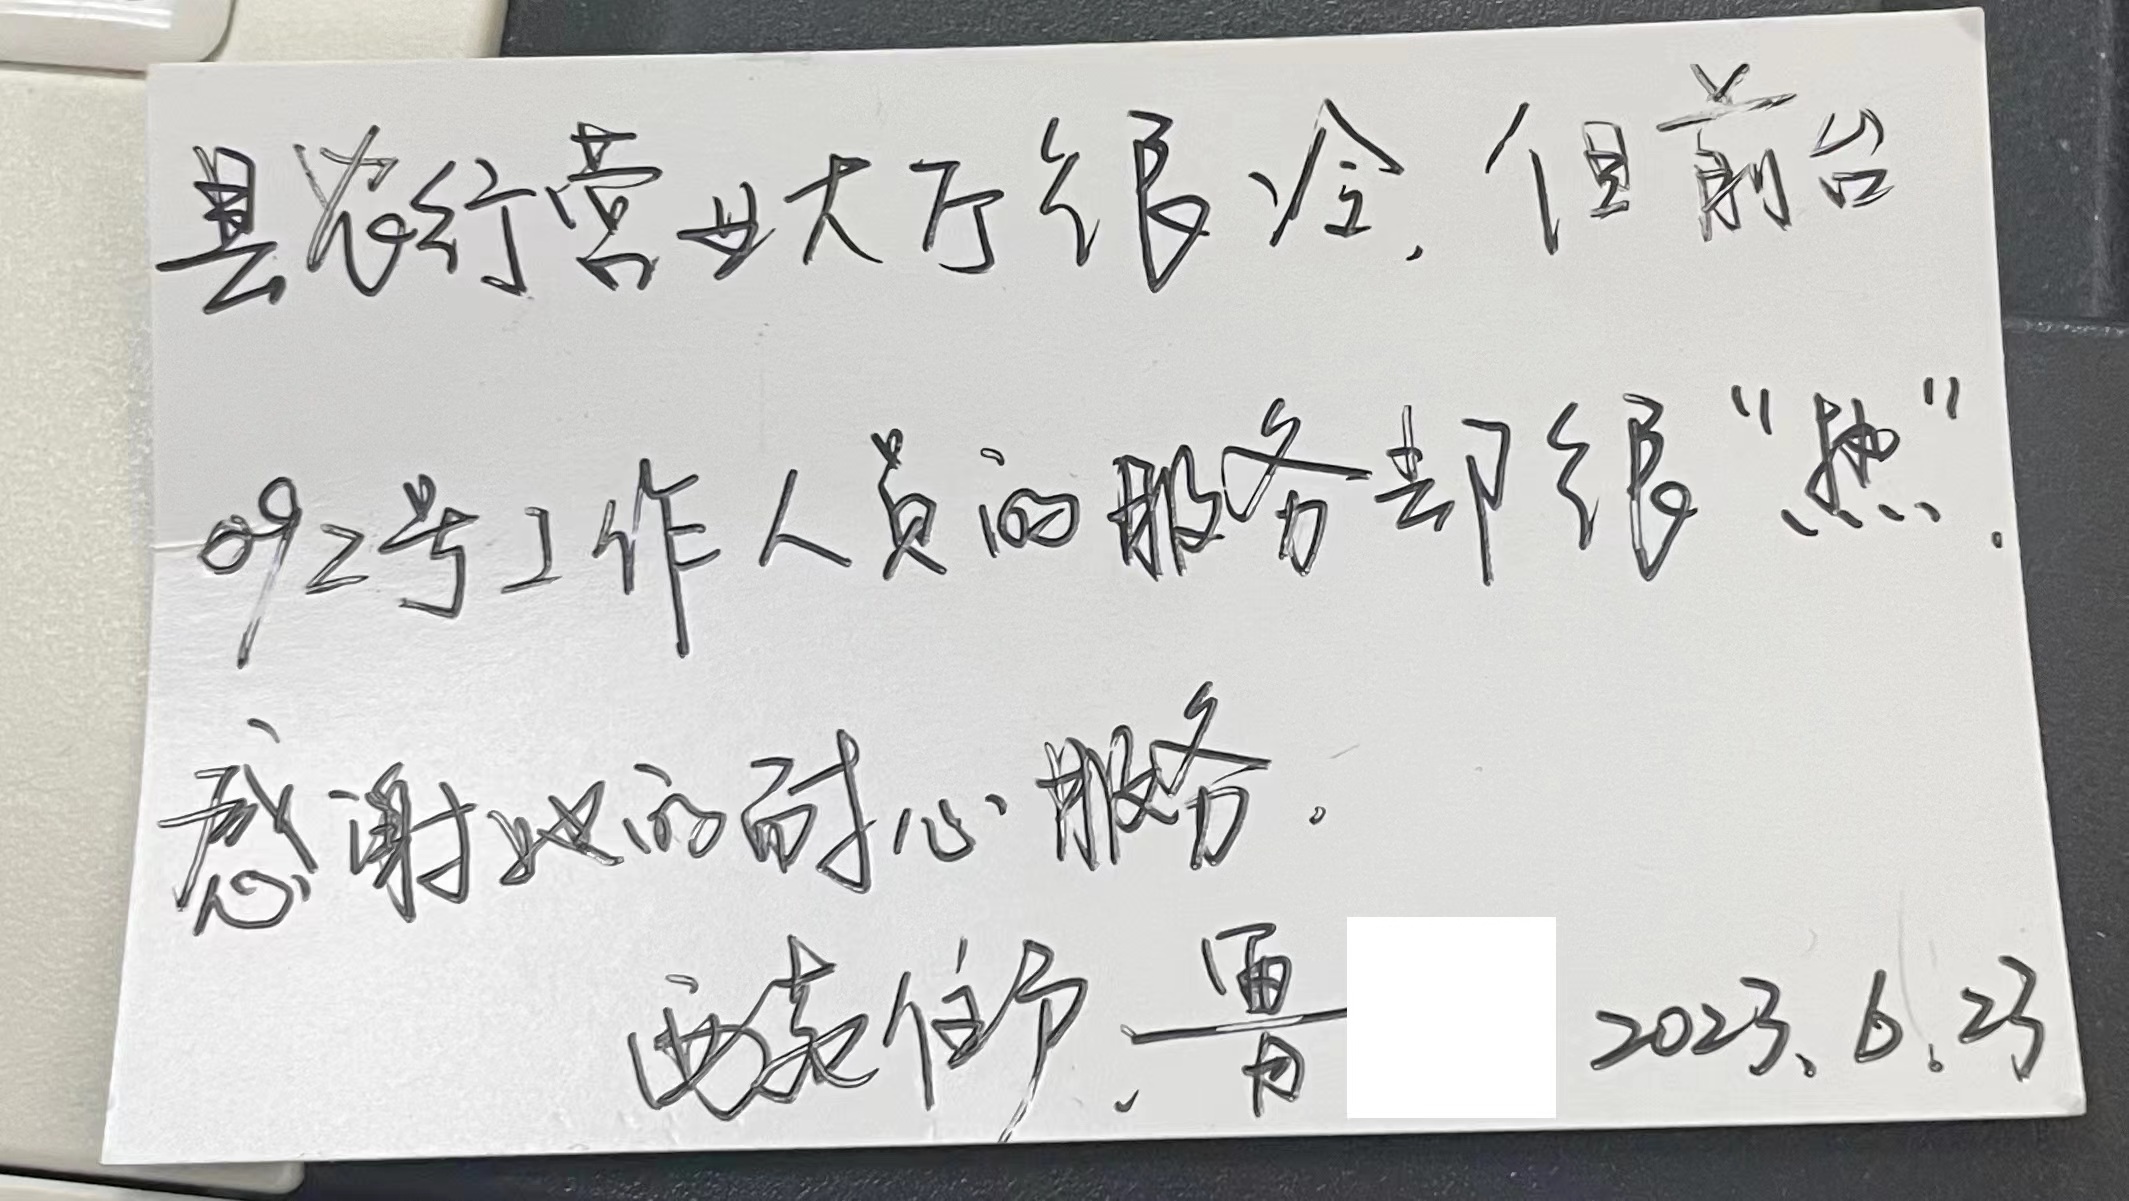 县农行营业大厅很冷,但前台
092号工作人员的服务却很“热”.
感谢她的耐心服务.
2023.6.23